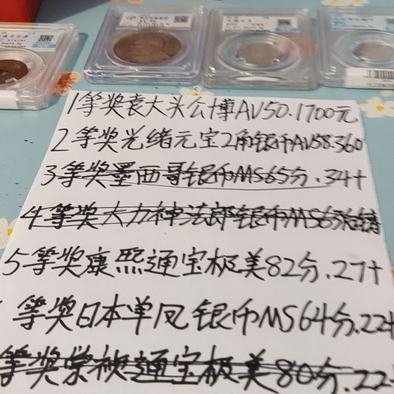 1等奖袁大头公博AV50.1700元
2等奖光绪元宝2角银币AV58.360
3等奖墨西哥银币MS65分.34十
4等奖大力神法郎银币MS63
5等奖康熙通宝极美82分.27十
等奖日本单凤银币MS64分.22十
等奖崇祯通宝极美80分.22